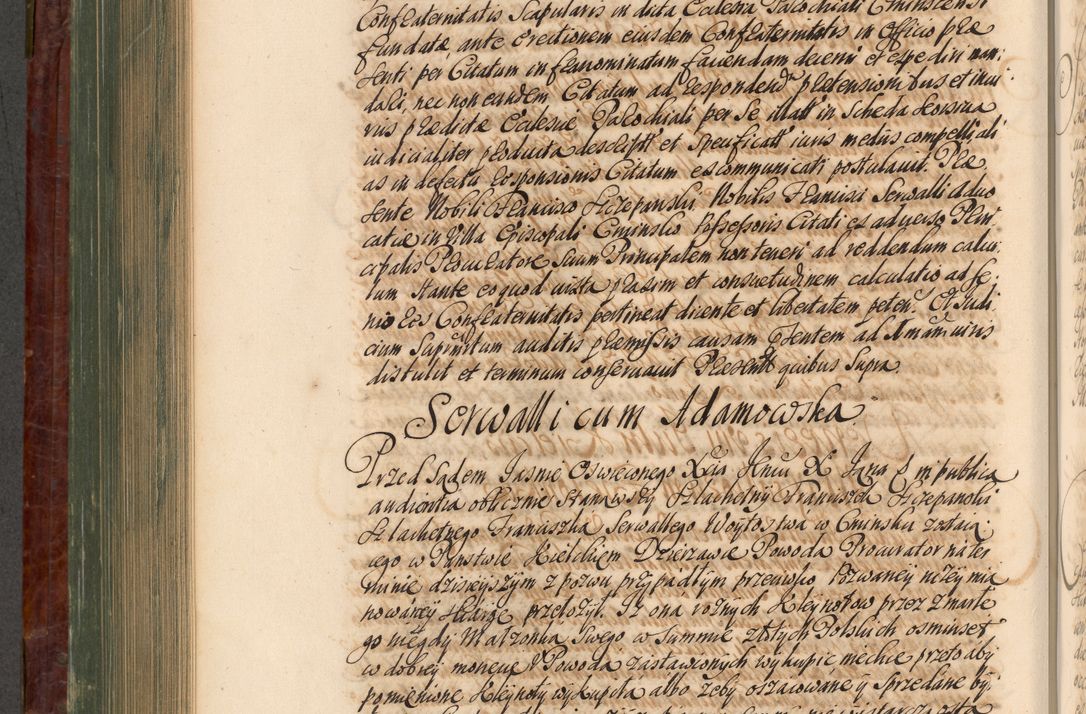 Confraternitatis Scapularis in dicta Ecclesia Parochiali Cminscensi
fundatæ, ante erectionem eiusdem Confraternitatis in Officio præ
senti per Citatum infranominatum faciendam decerni et expediri man
dari, nec non eundem Citatum ad respondend. prætensionibus et iniu
riis prædictæ Ecclesiæ Parochiali per se illatt in Scheda seorsiva
iudicialiter producita descriptt et specificatt iuris mediis compelli ali
as in defectu responsionis Citatum excommunicari postulavit. Præ
sente Nobili Francisco Szczepanski Nobilis Francisci Serwalli Advo
catiæ in Villa Episcopali Cminsko Possessoris Citati ex adverso Prin
cipalis Procuratore Suum Principalem non teneri ad reddendum calcu
lum stante eo quod iuxta praxim et consuetudinem calculatio ad Se
nio res Confraternitatis pertineat dicente et libertatem peten. Et Judi
cium Supinsitum auditis præmissis causam Psentem ad Amanuviris
distulit et terminum conservavit Præsentt quibus Supra.
Serwalli cum Adamowska
Przed Sądem Jasnie Oswieconego Xcia Jmci X Jgza f in publica
audientia oblicznie Stanąwszy Szlachetny Franciszek Szczepanski
Szlachetnego Franciszka Serwallego Woytostwa w Cminsku zostaią
cego w Panstwie Kielckiem Dzierzawce Powoda Procurator na ter
minie dzisieyszym z pozwu przypadłym przeciwko Pozwaney niżey mia
nowaney skargę przełożył. Iż ona rożnych Kleynotow przez zmarłe
go niegdy Małzonka Swego w Summie złotych Polskich osmiuset
w dobrey monecie u Powoda zastawionych wykupic niechce przeto aby
pomienione Kleynoty wykupiła albo żeby oszacowane y sprzedane był